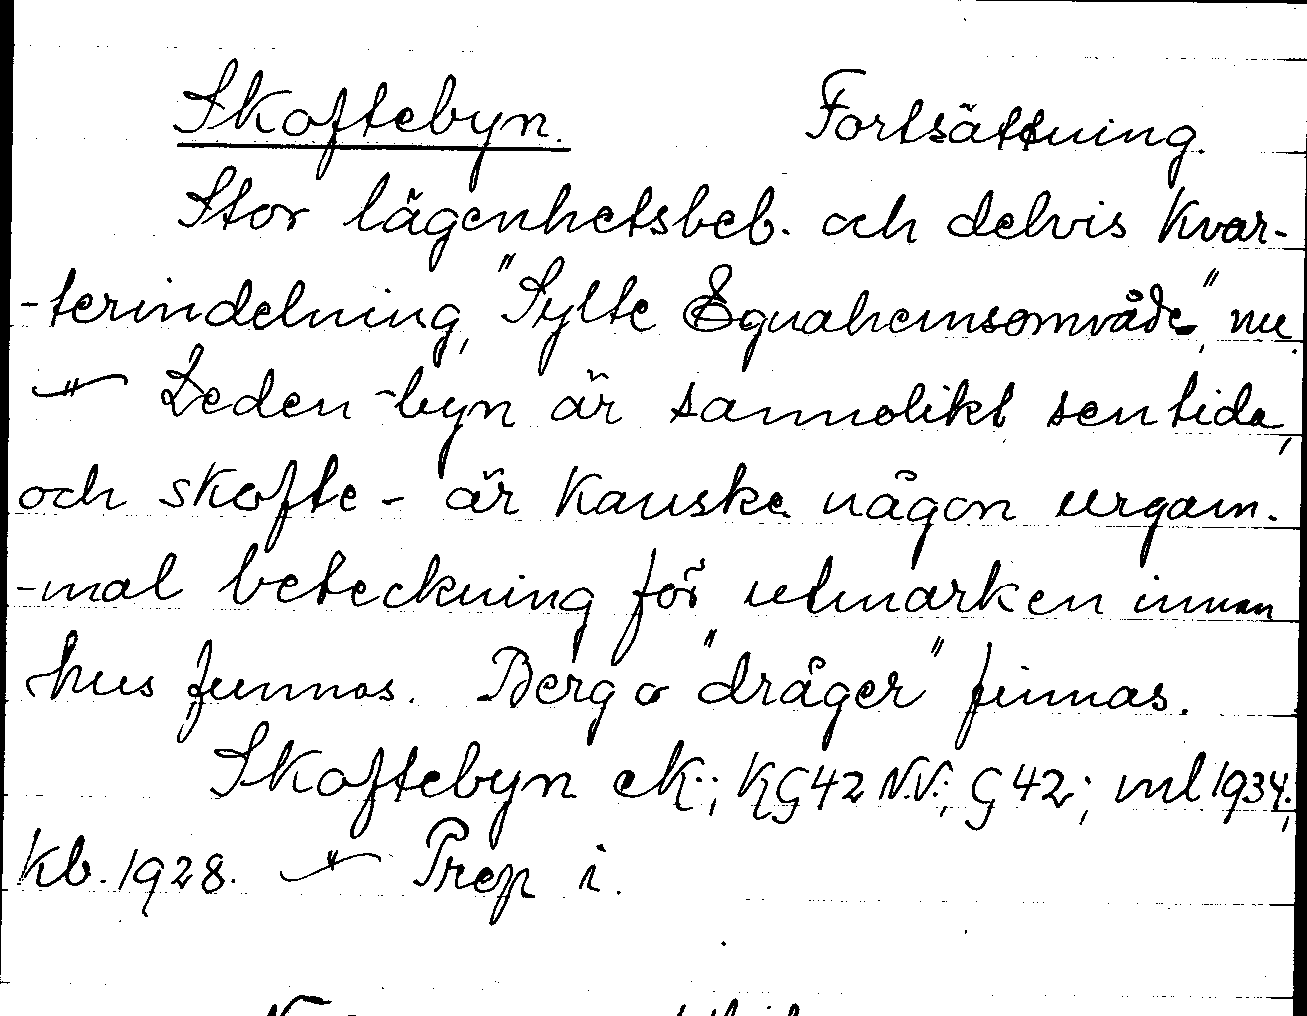 Skoftebyn. Fortsättning.
Stor lägenhetsbeb. och delvis kvar-
-terindelning, "Sylte Egnahemsområde", nu.
Leden -byn är sannolikt sentida,
och skofte- är kanske någon urgam.
-mal beteckning för utmarken innan
hus funnos. Berg o "dråger" finnas.
Skoftebyn ek.; KG42 N.V.; G42; ml 1934;
kb. 1928. Prep i.